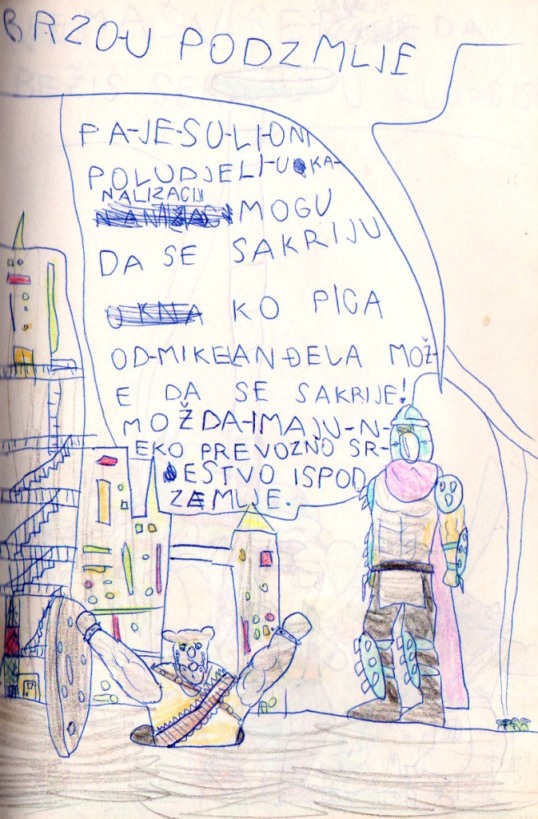 BRZO-U PODZMLJE
PA-JE-SU-LI-ONI
POLUDJELI-U KA-
NALIZACIJI
MOGU
DA SE SAKRIJU
KO PICA
OD-MIKEANĐELA MOŽ-
E DA SE SAKRIJE!
MOŽDA-IMAJU-N-
EKO PREVOZNO SR-
ĐESTVO ISPOD
ZEMLJE.